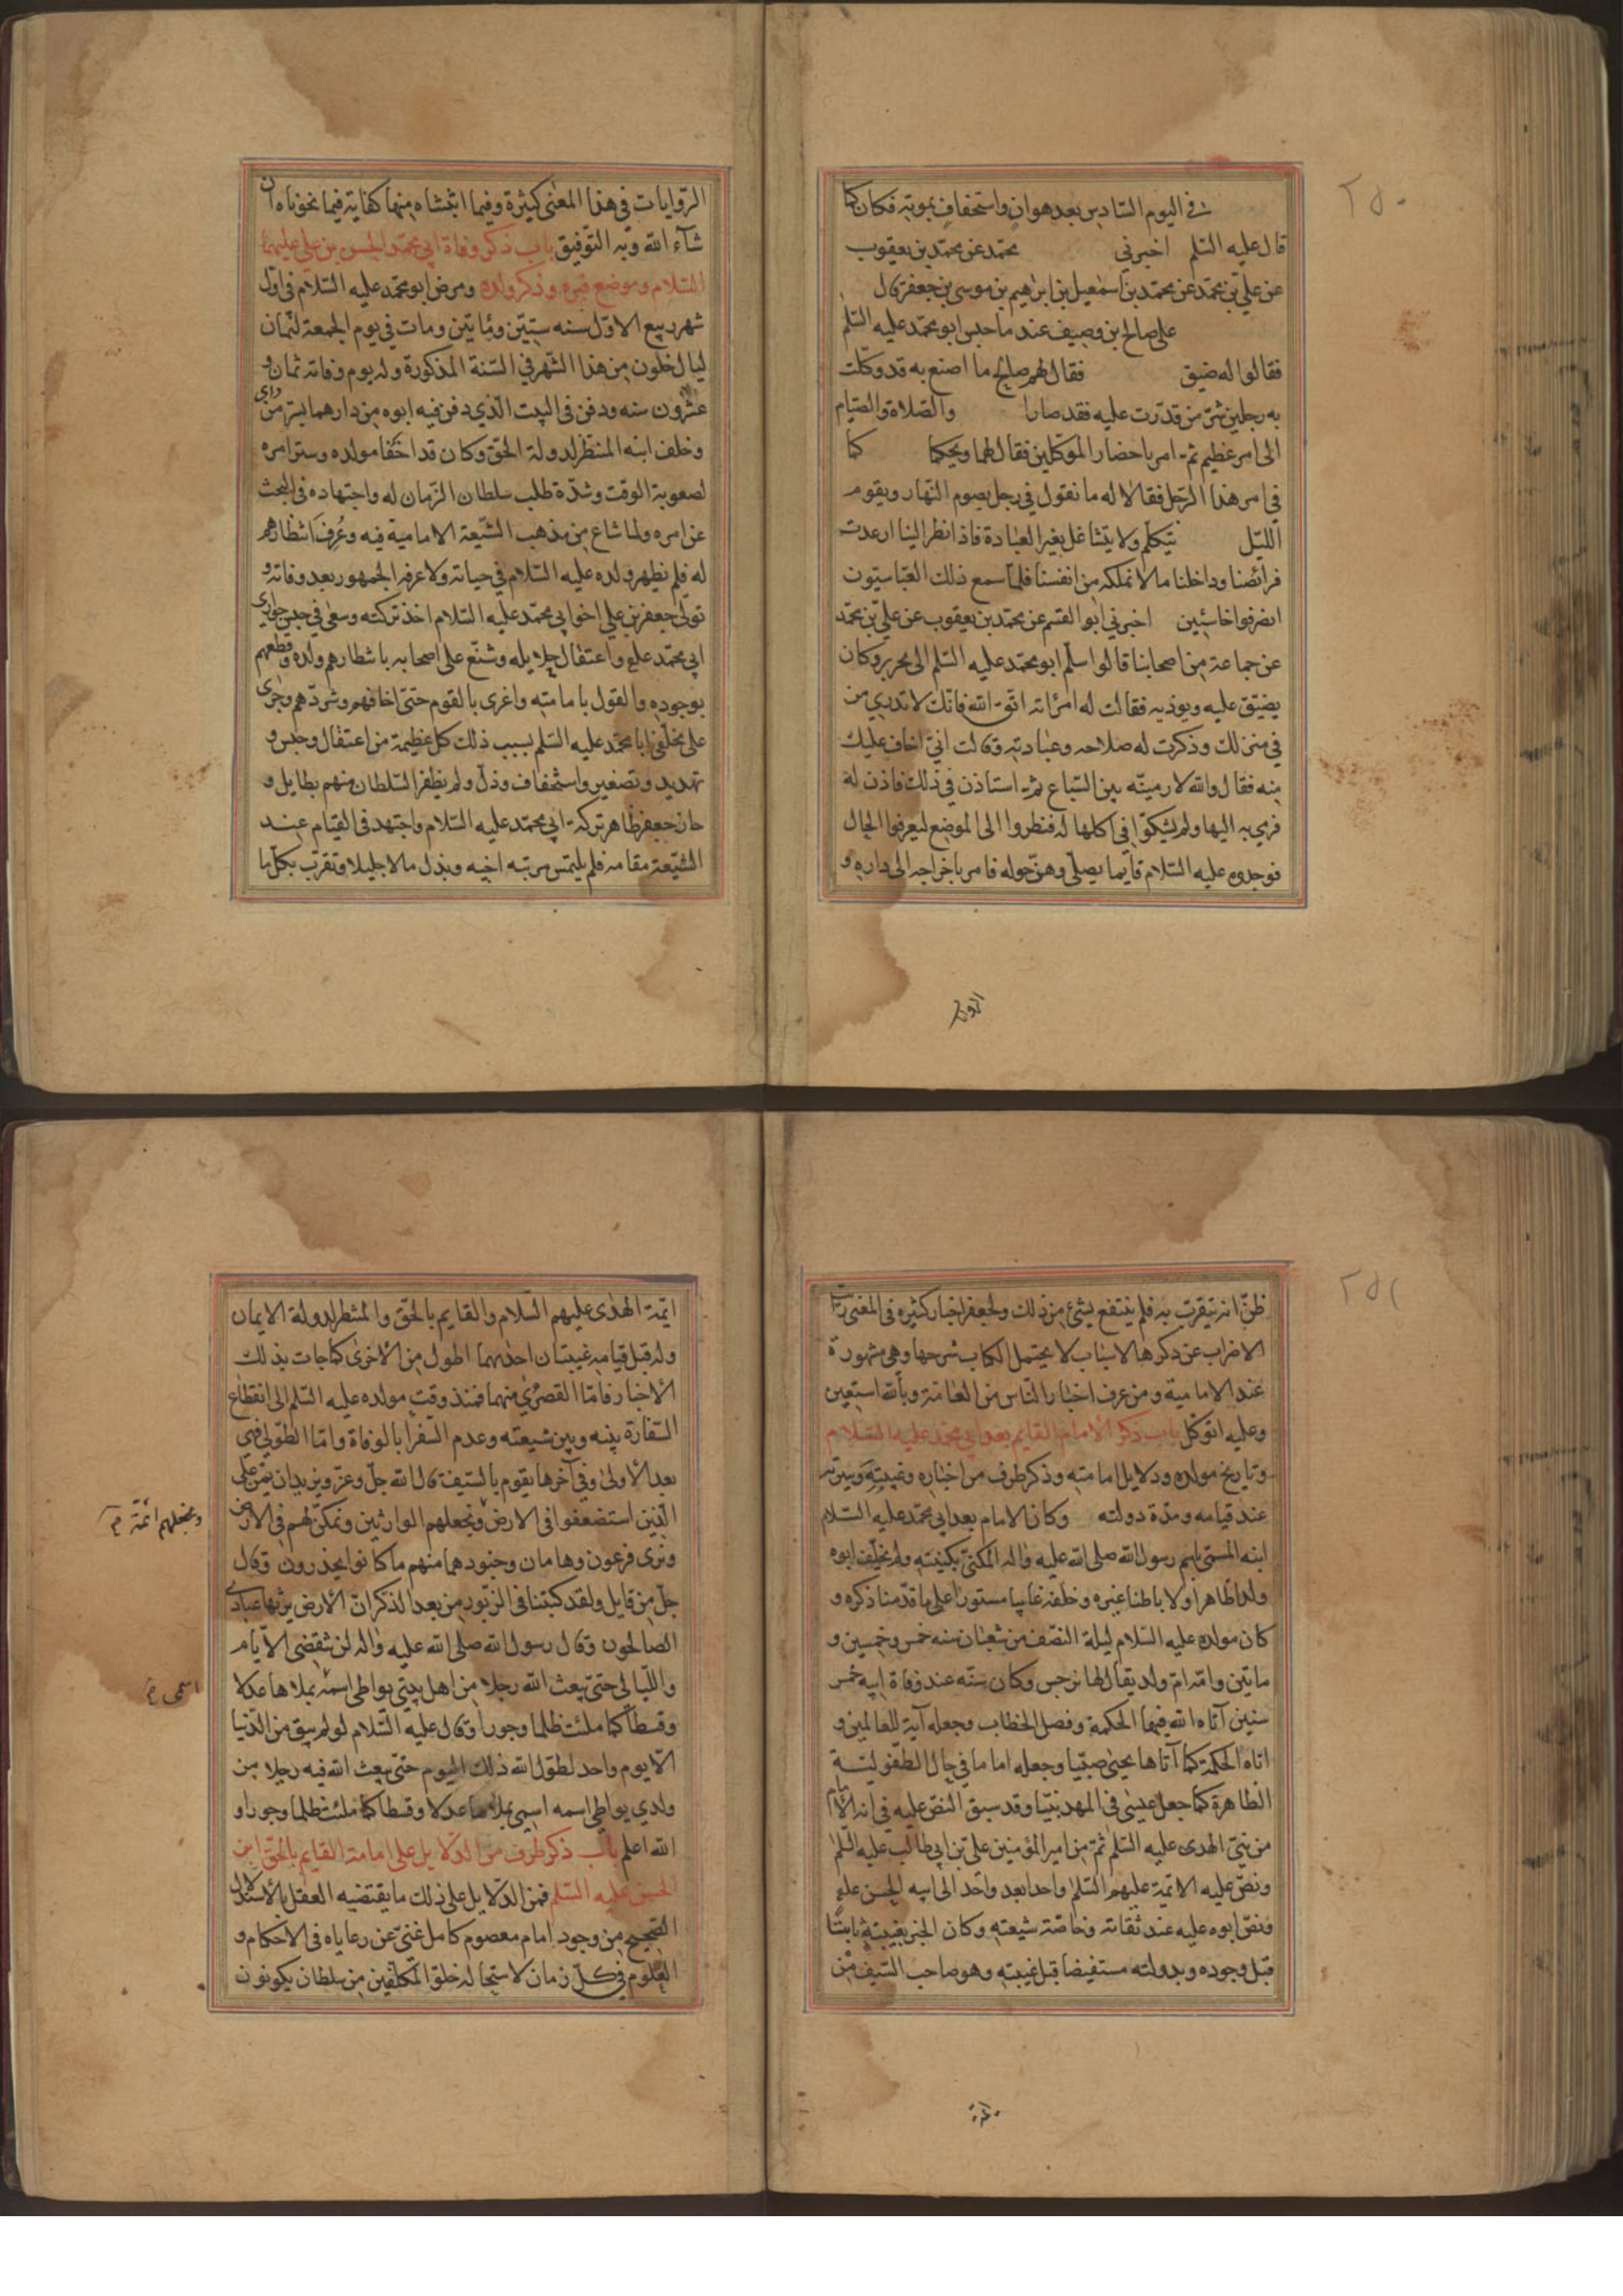 ٢٥٠
في اليوم السادس بعد هوان واستخفاف بموته فكان كما
قال عليه السلم اخبرني محمد عن محمد بن يعقوب
عن علي بن محمد عن محمد بن اسمعيل بن ابرهيم بن موسى بن جعفر قال
على صالح بن وصيف عند ما حبس ابو محمد عليه السلم
فقالوا له ضيق فقال لهم صالح ما اصنع به قد وكلت
به رجلين شر من قدرت عليه فقد صارا والصلاة والصيام
الى امر عظيم ثم امر باحضار الموكلين فقال لهما ويحكما كما
في امر هذا الرجل فقالا له ما نقول في رجل يصوم النهار ويقوم
الليل يتكلم ولا يتشاغل بغير العبادة فاذا نظر الينا ارعدت
فرائصنا وداخلنا ما لا نملكه من انفسنا فلما سمع ذلك العباسيون
انصرفوا خاسئين اخبرني ابو القسم عن محمد بن يعقوب عن علي بن محمد
عن جماعة من اصحابنا قالوا سلم ابو محمد عليه السلم الى نحرير وكان
يضيق عليه ويوذيه فقالت له امراته اتق الله فانك لا تدري من
في منزلك وذكرت له صلاحه وعبادته وقالت اني اخاف عليك
منه فقال والله لارمينه بين السباع ثم استاذن في ذلك فاذن له
فرمي به اليها ولم يشكوا في اكلها له فنظروا الى الموضع ليعرفوا الحال
فوجدوه عليه السلام قايما يصلي وهي حوله فامر باخراجه الى داره و
الروايات في هذا المعنى كثيرة وفيما اثبتناه منها كفاية فيما نحوناه ان
شآء الله وبه التوفيق باب ذكر وفاة ابي محمد الحسن بن علي عليهما
السلام وموضع قبره وذكر ولده ومرض ابو محمد عليه السلام في اول
شهر ربيع الاول سنه ستين ومأتين ومات في يوم الجمعة لثمان
ليال خلون من هذا الشهر في السنة المذكورة وله يوم وفاته ثمان و
عشرون سنه ودفن في البيت الذي دفن فيه ابوه من دارهما بسر من راى
وخلف ابنه المنتظر لدولة الحق وكان قد اخفا مولده وستر امره
لصعوبة الوقت وشدة طلب سلطان الزمان له واجتهاده في البحث
عن امره ولما شاع من مذهب الشيعة الامامية فيه وعرف انتظارهم
له فلم يظهر ولده عليه السلام في حياته ولا عرفه الجمهور بعد وفاته و
تولى جعفر بن علي اخو ابي محمد عليه السلام اخذ تركته وسعى في حبس جواري
ابي محمد علع واعتقال حلايله وشنع على اصحابه بانتظارهم ولده وقطعهم
بوجوده والقول بامامته واغرى بالقوم حتى اخافهم وشردهم وجرى
على مخلفي ابا محمد عليه السلم بسبب ذلك كل عظيمة من اعتقال وحبس و
تهديد وتصغير واستخفاف وذل ولم يظفر السلطان منهم بطايل و
حاز جعفر ظاهر تركة ابي محمد عليه السلام واجتهد في القيام عند
الشيعة مقامه فلم يلتمس مرتبه اخيه وبذل مالا جليلا وتقرب بكل ما
٢٥١
ظن انه يتقرب به فلم ينتفع بشئ من ذلك ولجعفر اخبار كثيره في المعنى رأيت
الاضراب عن ذكرها لاسباب لا يحتمل الكتاب شرحها وهي مشهورة
عند الامامية ومن عرف اخبار الناس من العامة وبالله استعين
وعليه اتوكل باب ذكر الامام القايم بعد ابي محمد عليه السلام
وتاريخ مولده ودلايل امامته وذكر طرف من اخباره وغيبته وسيرته
عند قيامه ومدة دولته وكان الامام بعد ابي محمد عليه السلام
ابنه المسمى باسم رسول الله صلى الله عليه واله المكنى بكنيته ولم يخلف ابوه
ولدا ظاهرا ولا باطنا غيره وخلفه غايبا مستورا على ما قدمنا ذكره و
كان مولده عليه السلام ليلة النصف من شعبان سنه خمس وخمسين و
ماتين وامه ام ولد يقال لها نرجس وكان سنه عند وفاة ابيه خمس
سنين آتاه الله فيها الحكمة وفصل الخطاب وجعله آية للعالمين و
اتاه الحكمة كما آتاها يحيى صبيا وجعله اماما في حال الطفوليـــة
الظاهرة كما جعل عيسى في المهد نبيا وقد سبق النص عليه في انه الامام
من نبي الهدى عليه السلم ثم من امير المؤمنين علي بن ابي طالب عليه السلم
ونص عليه الائمة عليهم السلم واحدا بعد واحد الى ابيه الحسن علع
ونص ابوه عليه عند ثقاته وخاصة شيعته وكان الخبر بغيبته ثابتا
قبل وجوده وبدولته مستفيضا قبل غيبته وهو صاحب السيف من
ائمة الهدى عليهم السلام والقايم بالحق والمنتظر لدولة الايمان
وله قبل قيامه غيبتان احديهما اطول من الاخرى كما جات بذلك
الاخبار فاما القصرى منهما فمنذ وقت مولده عليه السلم الى انقطاع
السفارة بينه وبين شيعته وعدم السفرا بالوفاة واما الطولى فهي
بعد الاولى وفي آخرها يقوم بالسيف قال الله جل وعز ونريد ان نمن على
الذين استضعفوا في الارض ونجعلهم الوارثين ونمكن لهم في الارض
ونجعلهم ائمة
ونرى فرعون وهامان وجنودهما منهم ما كانوا يحذرون وقال
جل من قايل ولقد كتبنا في الزبور من بعد الذكر ان الارض يرثها عبادي
الصالحون وقال رسول الله صلى الله عليه واله لن تنقضى الايام
والليالي حتى يبعث الله رجلا من اهل بيتي يواطى اسمه يملاها عدلا
اسمى
وقسطا كما ملئت ظلما وجورا وقال عليه السلام لو لم يبق من الدنيا
الا يوم واحد لطول الله ذلك اليوم حتى يبعث الله فيه رجلا من
ولدي يواطى اسمه اسمى يملاها عدلا وقسطا كما ملئت ظلما وجورا و
الله اعلم باب ذكر طرف من الدلايل على امامة القايم بالحق ابن
الحسن عليه السلم فمن الدلايل على ذلك ما يقتضيه العقل بالاستدلال
الصحيح من وجود امام معصوم كامل غني عن رعاياه في الاحكام و
العلوم في كل زمان لاستحاله خلو المكلفين من سلطان يكونون